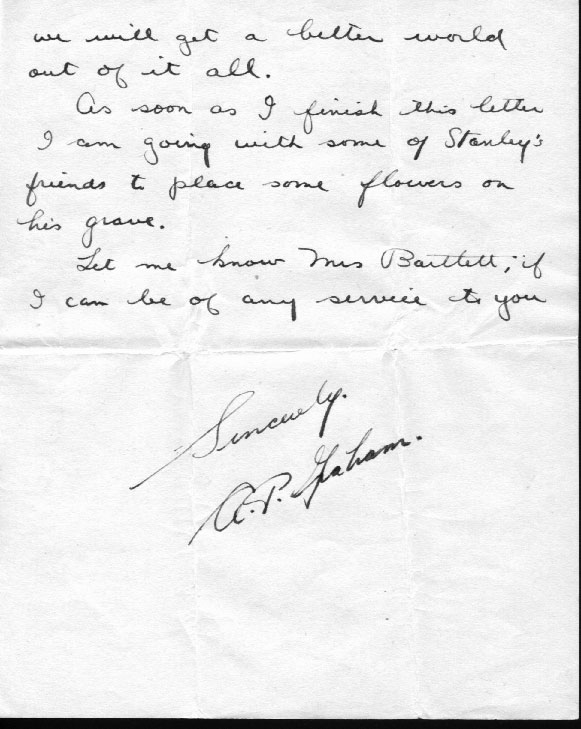 we will get a better world
out of it all.
As soon as I finish this letter
I am going with some of Stanley's
friends to place some flowers on
his grave.
Let me know Mrs Bartlett, if
I can be of any service to you
Sincerely.
A.P. Graham.